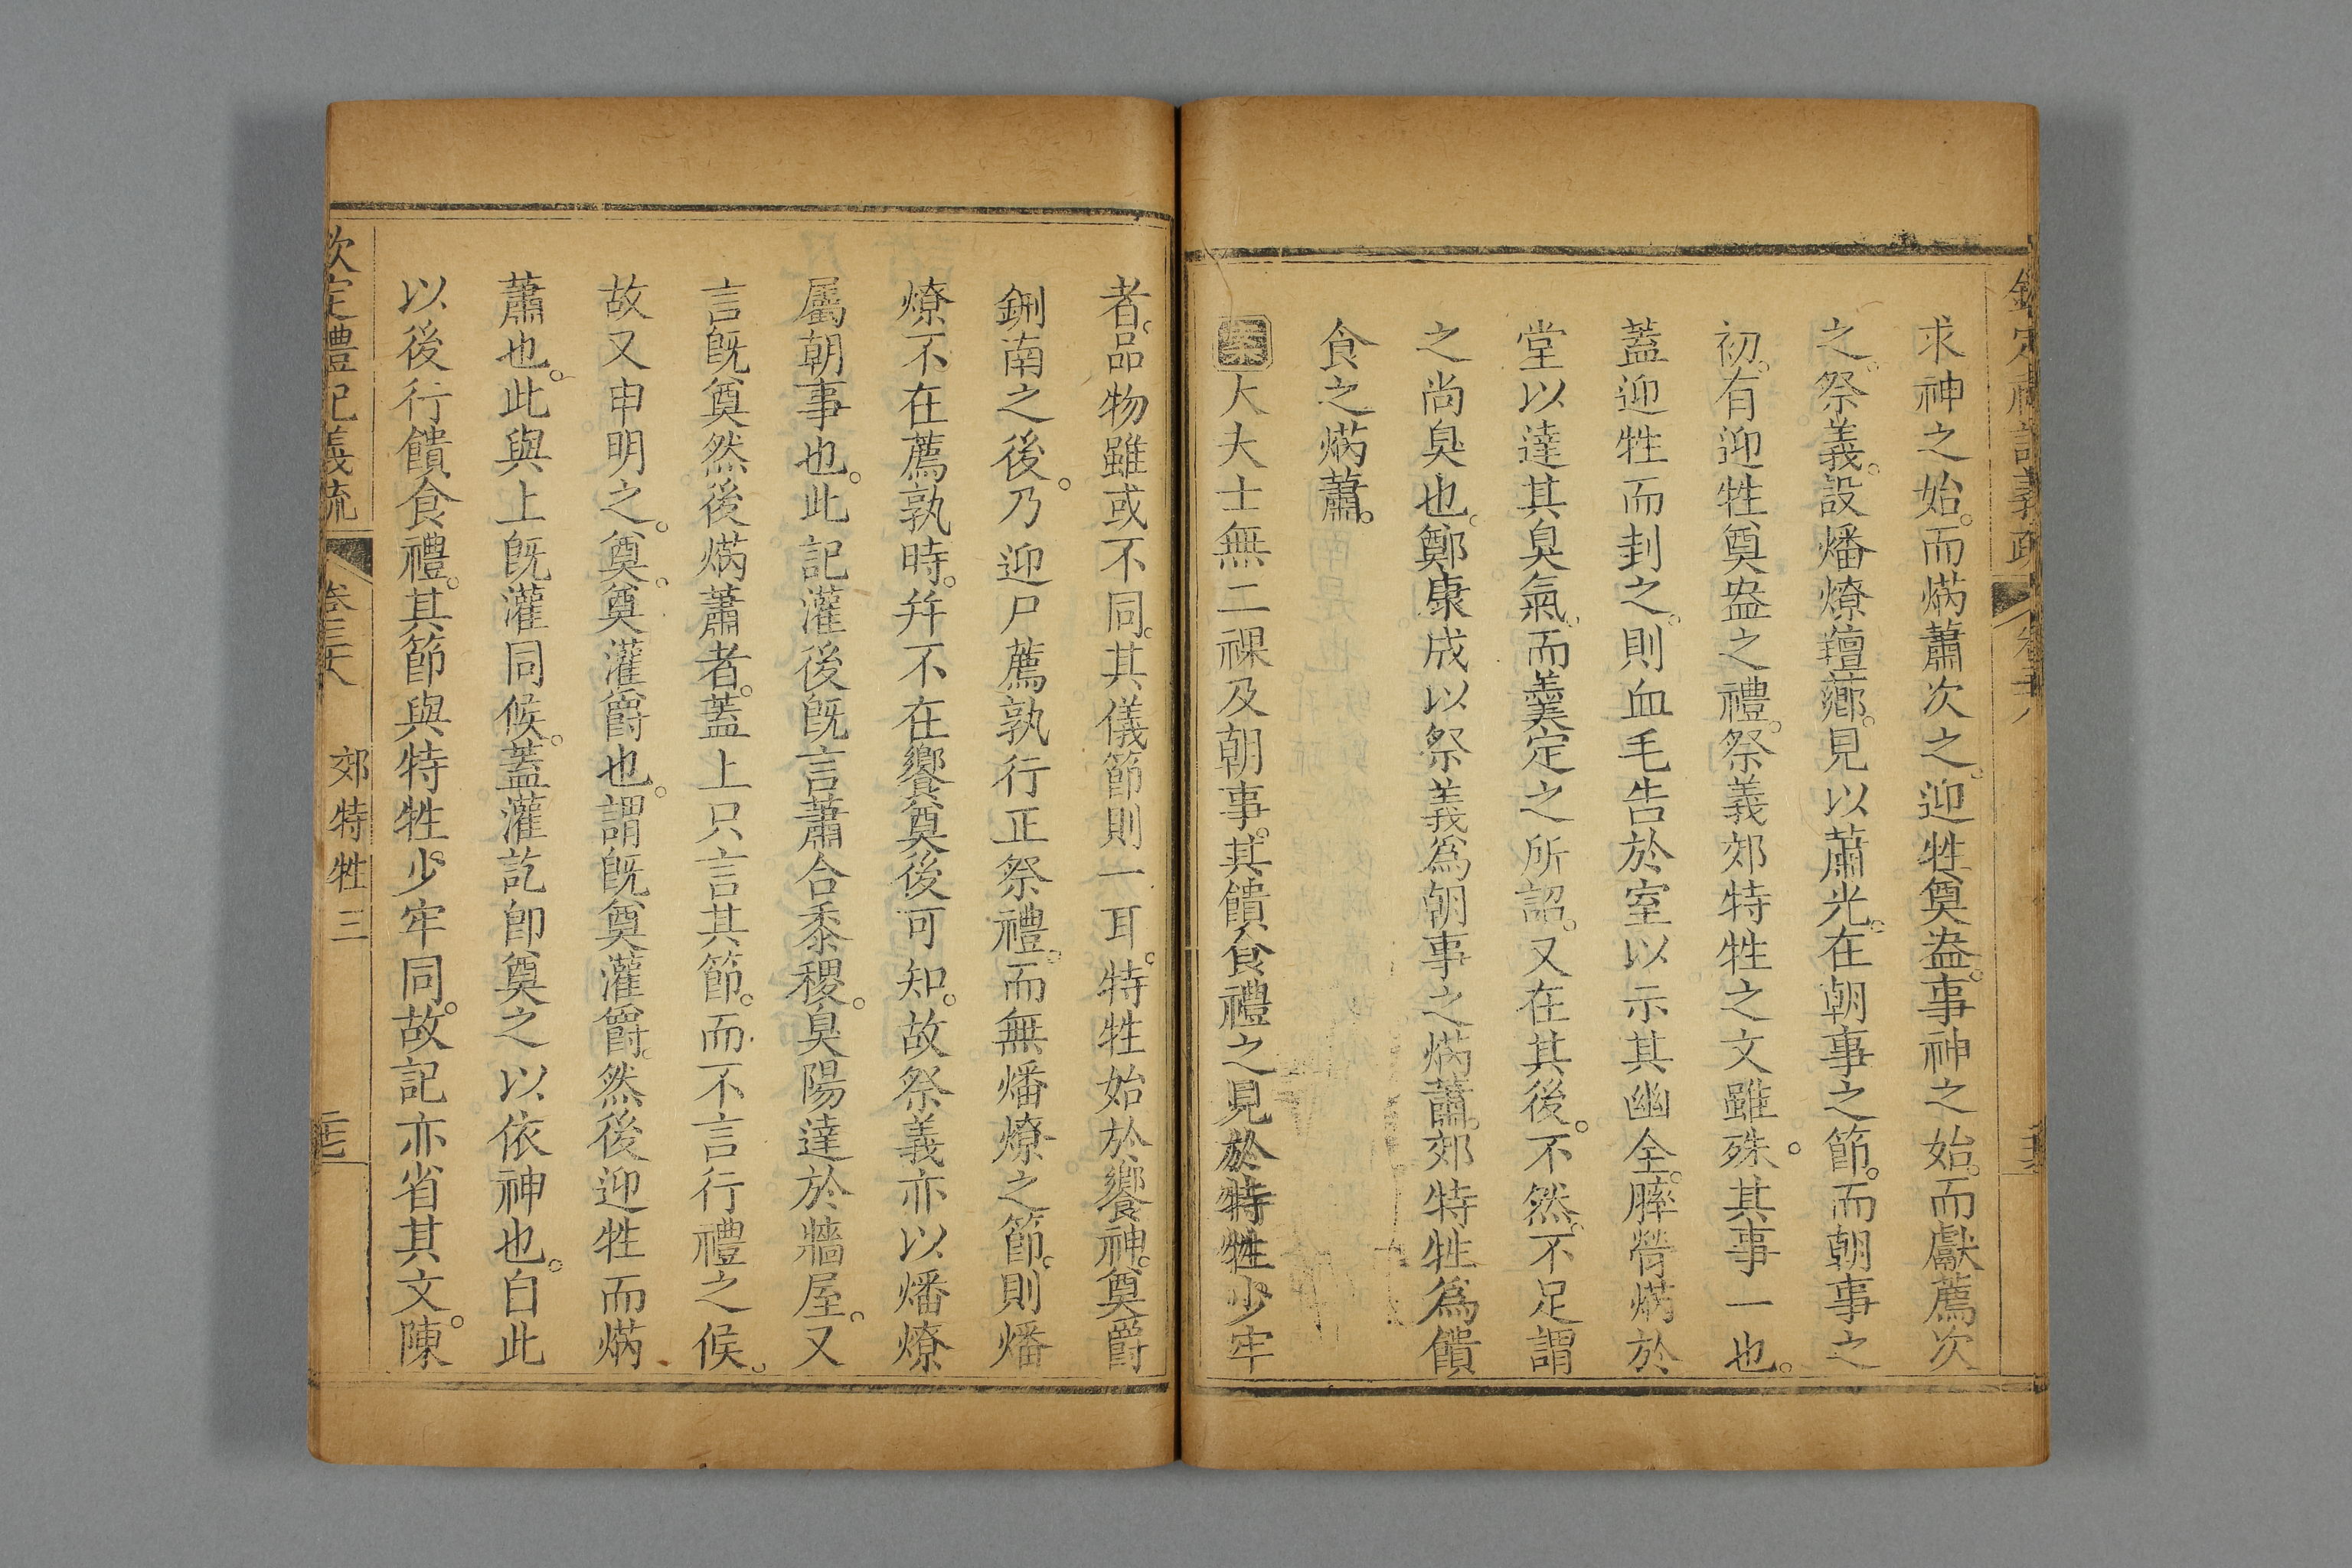 欽定禮記義疏 卷三十八
求神之始。而焫蕭次之。迎牲奠盎。事神之始。而獻薦次
之。祭義。設燔燎羶薌。見以蕭光。在朝事之節。而朝事之
初。有迎牲奠盎之禮。祭義郊特牲之文雖殊。其事一也。
蓋迎牲而封之。則血毛告於室以示其幽全。膟膋焫於
堂以達其臭氣。而羹定之所詔。又在其後。不然。不足謂
之尚臭也。鄭康成以祭義爲朝事之焫蕭。郊特牲爲饋
食之焫蕭。
案大夫士無二祼及朝事。其饋食禮之見於特牲。少牢
者。品物雖或不同。其儀節則一耳。特牲始於饗神。奠爵
鉶南之後。乃迎尸薦孰行正祭禮。而無燔燎之節。則燔
燎不在薦孰時。并不在饗奠後可知。故祭義亦以燔燎
屬朝事也。此記灌後旣言蕭合黍稷。臭陽達於牆屋。又
言旣奠然後焫蕭者。蓋上只言其節。而不言行禮之候。
故又申明之。奠。奠灌爵也。謂旣奠灌爵。然後迎牲而焫
蕭也。此與上旣灌同候。蓋灌訖卽奠之以依神也。自此
以後行饋食禮。其節與特牲少牢同。故記亦省其文。陳
欽定禮記義疏 卷三十八 郊特牲三